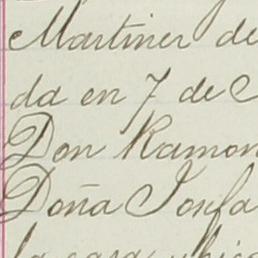 Martinez de
da en 7 de
Don Ramon
Doña Josefa
la casa